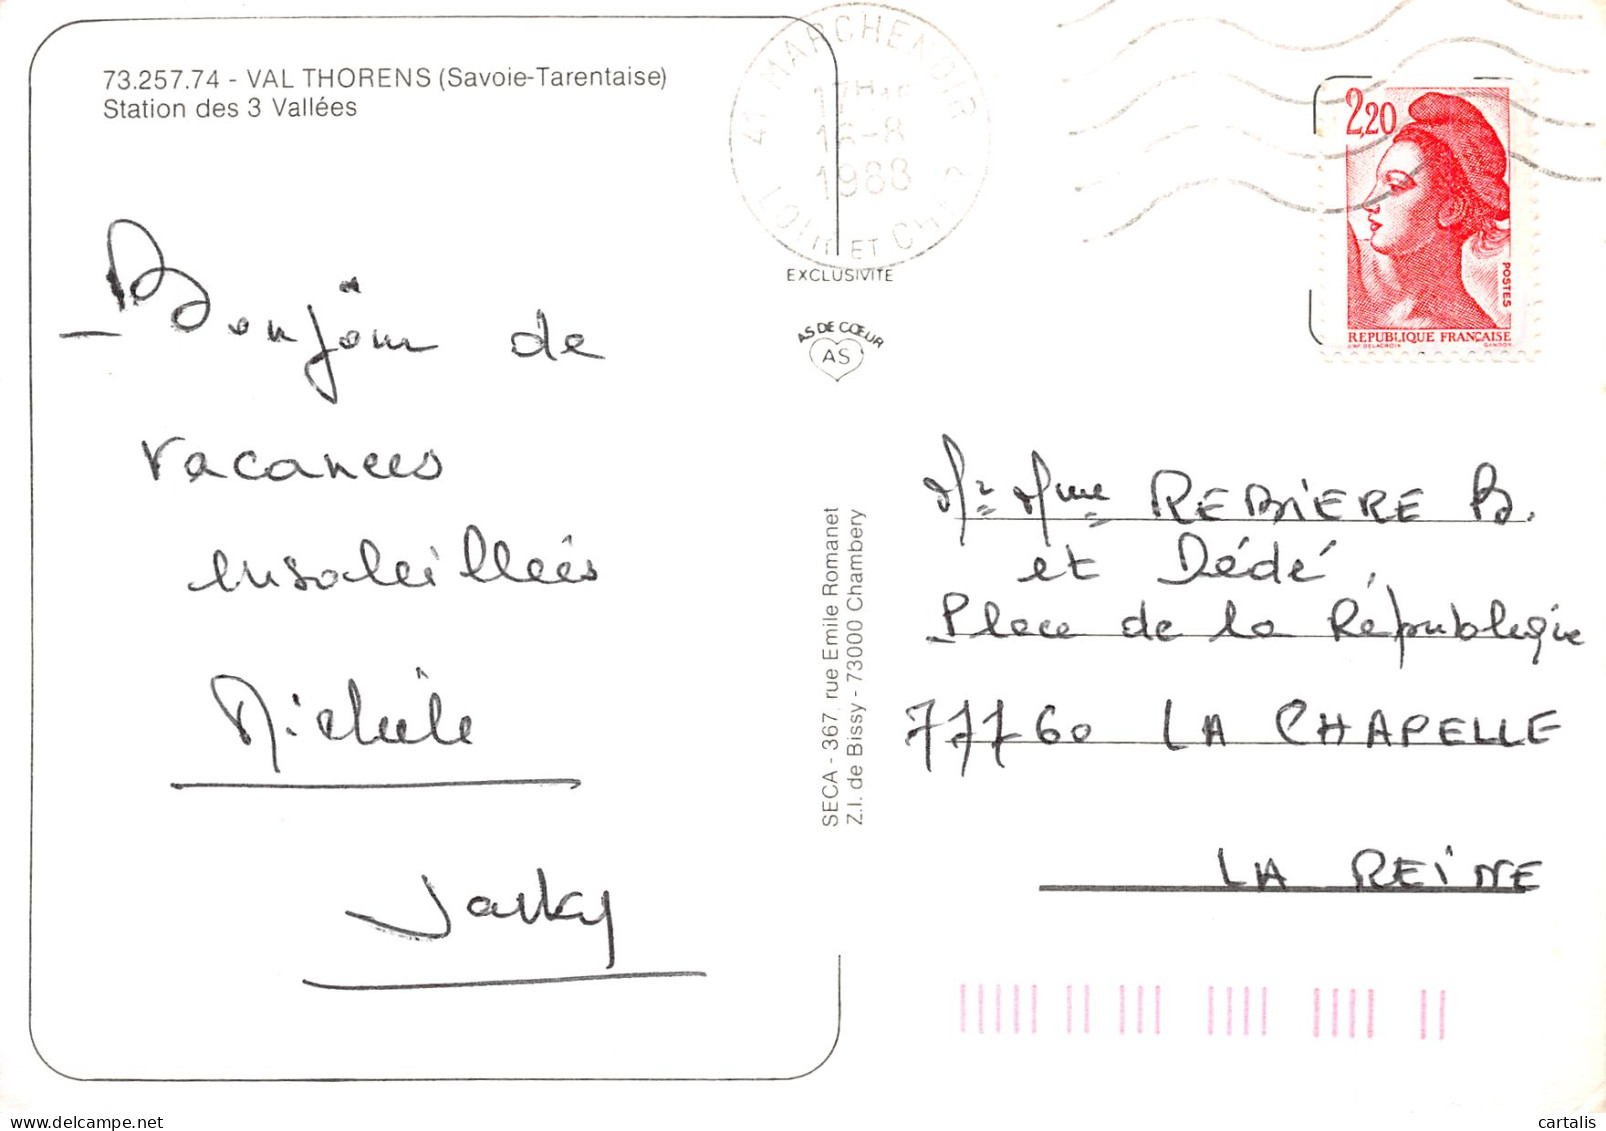 73.257.74 - VAL THORENS (Savoie-Tarentaise)
Station des 3 Vallées
Bonjour de
vacances
ensoleillées
Michèle
Jacky
41 MARCHENOIR
17H
16-8
1988
LOIR ET CHER
EXCLUSIVITE
AS DE CŒUR
AS
SECA - 367, rue Emile Romanet
Z.I. de Bissy - 73000 Chambery
2,20
POSTES
REPUBLIQUE FRANÇAISE
D'AP. DELACROIX GANDON
Mr Mme REBIERE B.
et Dédé,
Place de la République
77760 LA CHAPELLE
LA REINE
cartalis